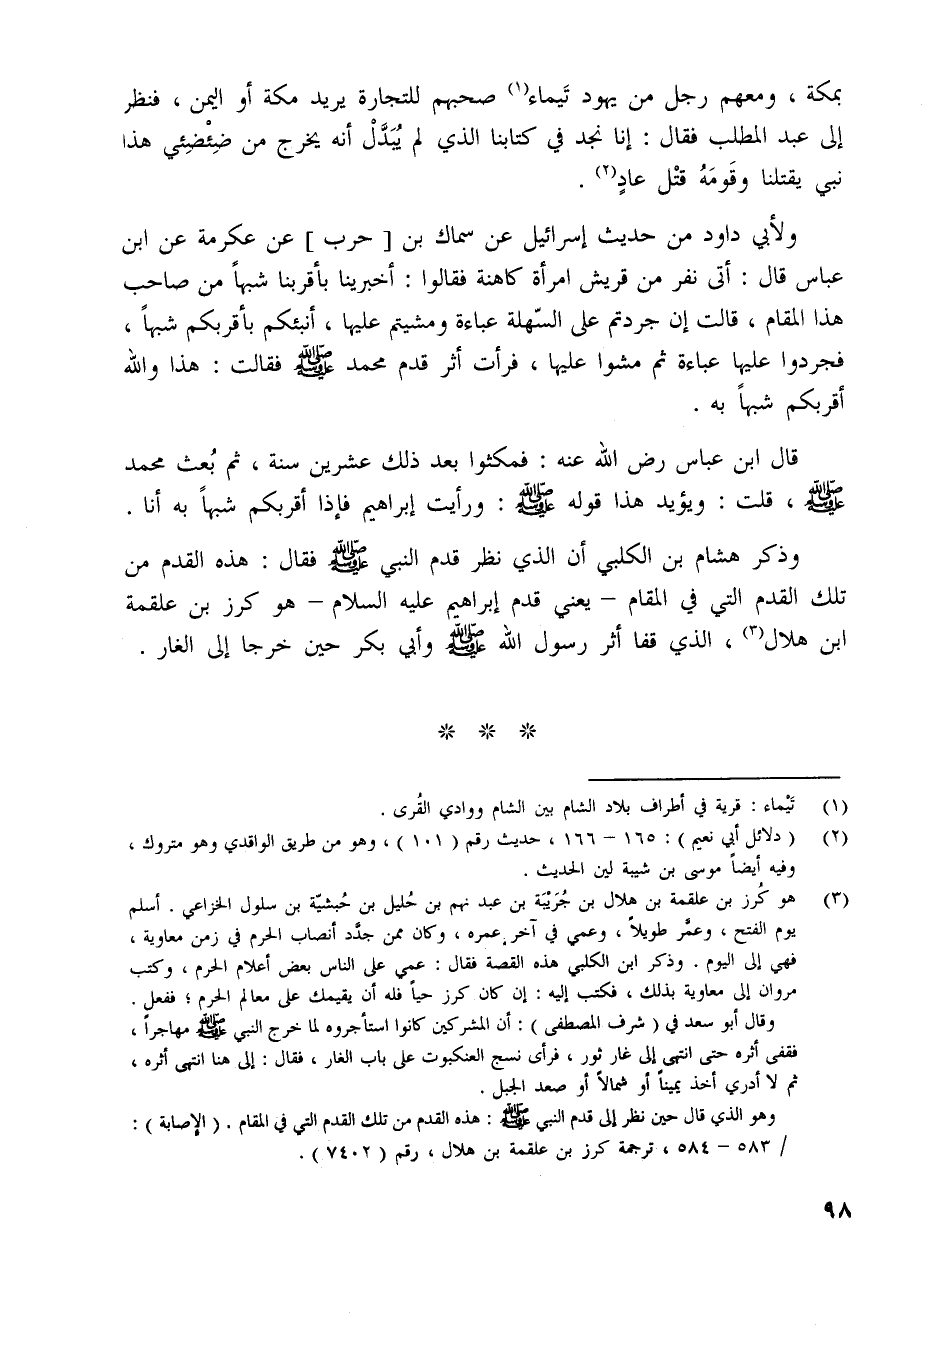 بمكة ، ومعهم رجل من يهود تَيماء(١) صحبهم للتجارة يريد مكة أو اليمن ، فنظر
إلى عبد المطلب فقال : إنا نجد في كتابنا الذي لم يُبَدَّلْ أنه يخرج من ضِئْضِئي هذا
نبي يقتلنا وقَومَهُ قتْل عادٍ(٢) .
ولأبي داود من حديث إسرائيل عن سماك بن [ حرب ] عن عكرمة عن ابن
عباس قال : أتى نفر من قريش امرأة كاهنة فقالوا : أخبرينا بأقربنا شبهاً من صاحب
هذا المقام ، قالت إن جردتم على السّهلة عباءة ومشيتم عليها ، أنبئكم بأقربكم شبهاً ،
فجردوا عليها عباءة ثم مشوا عليها ، فرأت أثر قدم محمد ﷺ فقالت : هذا والله
أقربكم شبهاً به .
قال ابن عباس رض الله عنه : فمكثوا بعد ذلك عشرين سنة ، ثم بُعث محمد
ﷺ ، قلت : ويؤيد هذا قوله ﷺ : ورأيت إبراهيم فإذا أقربكم شبهاً به أنا .
وذكر هشام بن الكلبي أن الذي نظر قدم النبي ﷺ فقال : هذه القدم من
تلك القدم التي في المقام – يعني قدم إبراهيم عليه السلام – هو كرز بن علقمة
ابن هلال(٣) ، الذي قفا أثر رسول الله ﷺ وأبي بكر حين خرجا إلى الغار .
* * *
(١) تَيْماء : قرية في أطراف بلاد الشام بين الشام ووادي القُرى .
(٢) ( دلائل أبي نعيم ) : ١٦٥ – ١٦٦ ، حديث رقم ( ١٠١ ) ، وهو من طريق الواقدي وهو متروك ،
وفيه أيضاً موسى بن شيبة لين الحديث .
(٣) هو كُرز بن علقمة بن هلال بن جُرَيْبَة بن عبد نهم بن حُليل بن حُبشيّة بن سلول الخزاعي . أسلم
يوم الفتح ، وعمَّر طويلاً ، وعمي في آخر عمره ، وكان ممن جدَّد أنصاب الحرم في زمن معاوية ،
فهي إلى اليوم . وذكر ابن الكلبي هذه القصة فقال : عمي على الناس بعض أعلام الحرم ، وكتب
مروان إلى معاوية بذلك ، فكتب إليه : إن كان كرز حياً فله أن يقيمك على معالم الحرم ؛ ففعل .
وقال أبو سعد في ( شرف المصطفى ) : أن المشركين كانوا استأجروه لما خرج النبي ﷺ مهاجراً ،
فقفى أثره حتى انتهى إلى غار ثور ، فرأى نسج العنكبوت على باب الغار ، فقال : إلى هنا انتهى أثره ،
ثم لا أدري أخذ يميناً أو شمالاً أو صعد الجبل .
وهو الذي قال حين نظر إلى قدم النبي ﷺ : هذه القدم من تلك القدم التي في المقام . ( الإصابة ) :
/ ٥٨٣ – ٥٨٤ ، ترجمة كرز بن علقمة بن هلال ، رقم ( ٧٤٠٢ ) .
٩٨